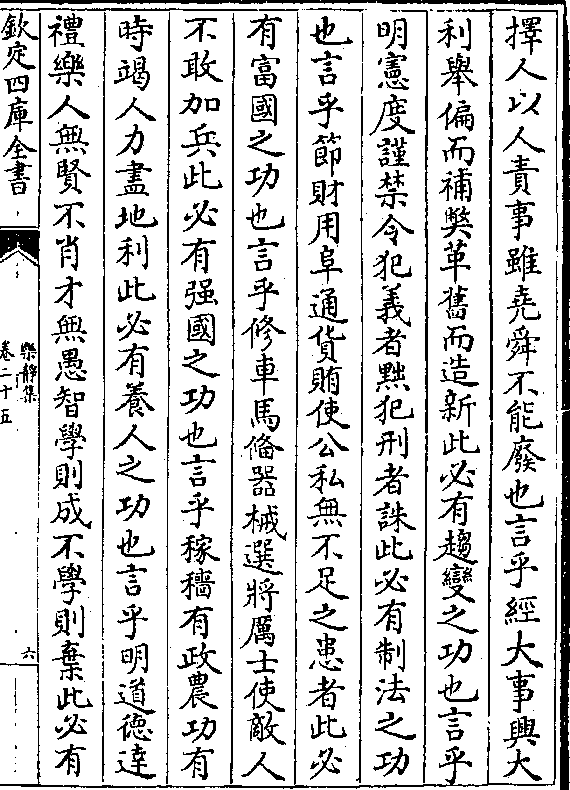 擇人以人責事雖堯舜不能廢也言乎經大事興大
利舉偏而補獘革舊而造新此必有趨變之功也言乎
明憲度謹禁令犯義者黜犯刑者誅此必有制法之功
也言乎節財用阜通貨賄使公私無不足之患者此必
有富國之功也言乎修車馬偹器械選將厲士使敵人
不敢加兵此必有强國之功也言乎稼穡有政農功有
時竭人力盡地利此必有養人之功也言乎明道德達
禮樂人無賢不肖才無愚智學則成不學則棄此必有
欽定四庫全書
樂靜集
卷二十五
六